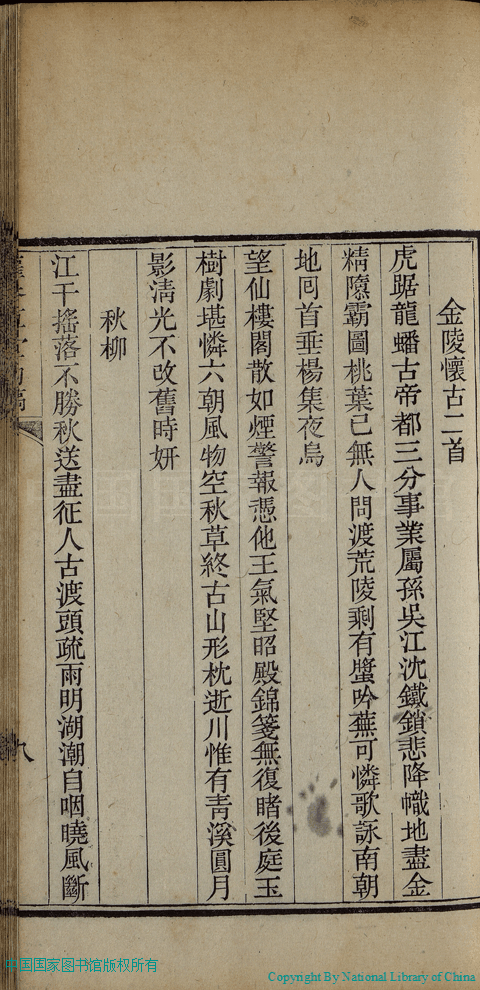 金陵懷古二首
虎踞龍蟠古帝都三分事業屬孫吳江沈鐵鎖悲降幟地盡金
精隳霸圖桃葉已無人問渡荒陵剩有螿吟蕪可憐歌詠南朝
地囘首垂楊集夜烏
望仙樓閣散如煙警報憑他王氣堅昭殿錦箋無復睹後庭玉
樹劇堪憐六朝風物空秋草終古山形枕逝川惟有靑溪圓月
影淸光不改舊時妍
秋柳
江干搖落不勝秋送盡征人古渡頭疏雨明湖潮自咽曉風斷
八
中国国家图书馆版权所有
Copyright By National Library of China